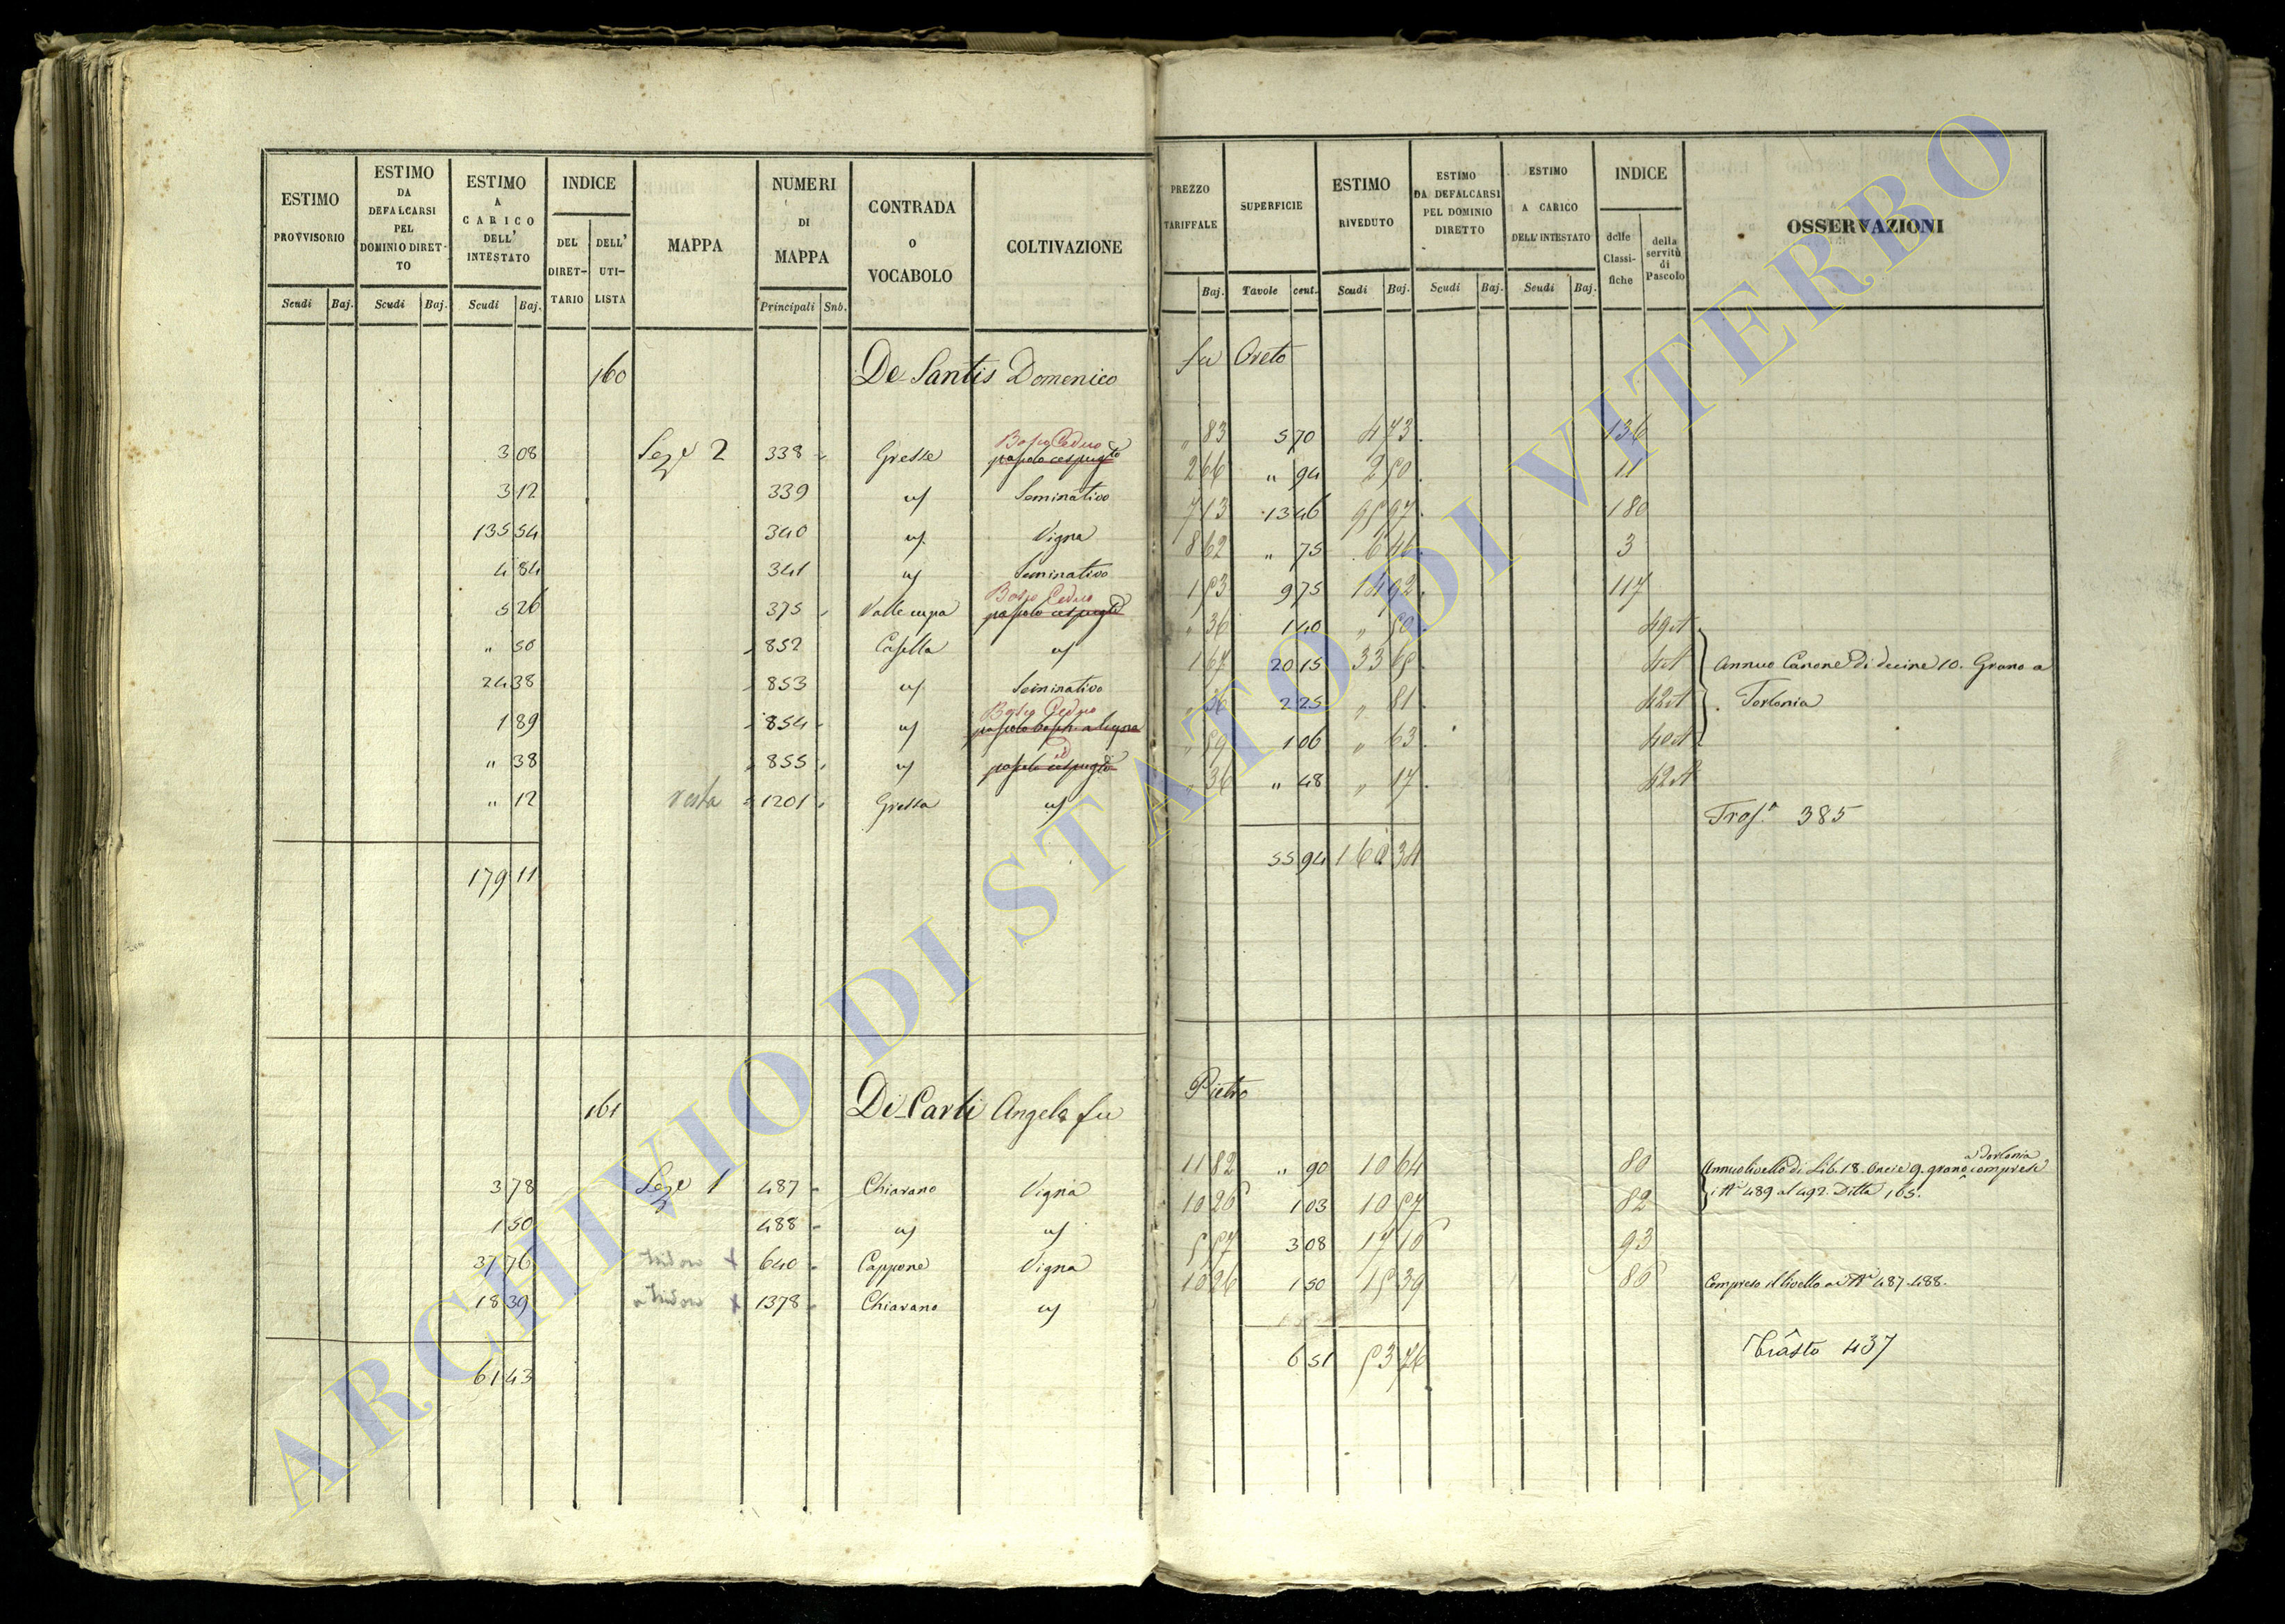 ESTIMO PROVVISORIO Scudi Baj.
ESTIMO DA DEFALCARSI PEL DOMINIO DIRETTO Scudi Baj.
ESTIMO A CARICO DELL' INTESTATO Scudi Baj.
INDICE DEL DIRETTARIO DELL' UTILISTA
MAPPA
NUMERI DI MAPPA Principali Sub.
CONTRADA O VOCABOLO
COLTIVAZIONE
PREZZO TARIFFALE Baj.
SUPERFICIE Tavole cent.
ESTIMO RIVEDUTO Scudi Baj.
ESTIMO DA DEFALCARSI PEL DOMINIO DIRETTO Scudi Baj.
ESTIMO A CARICO DELL'INTESTATO Scudi Baj.
INDICE delle Classifiche della servitù di Pascolo
OSSERVAZIONI
160 De Santis Domenico fu Oreto
3 08 Seze 2 338 Gresse Bosco Ceduo pascolo cespugto " 83 5 70 4 73 136
3 12 339 us Seminativo 2 66 " 94 2 50 11
135 54 340 us Vigna 7 13 13 46 95 97 180
4 84 341 us Seminativo 8 62 " 75 6 46 3
5 26 375 Valle cupa Bosco Ceduo pascolo cespugto 1 53 9 75 14 92 117
" 50 852 Casella us " 36 1 40 " 50 49 A
24 38 853 us Seminativo 1 67 20 15 33 65 4 A Annuo Canone di decine 10. Grano a
1 89 854 us Bosco Ceduo " 36 2 25 " 81 42 A Torlonia
" 38 855 us pascolo cespugto " 59 1 06 " 63 40 A
" 12 resta 1201 Gressa us " 36 " 48 " 17 42 A
Trasp. 385
179 11 55 94 160 34
161 Di Carli Angela fu Pietro
3 78 Seze 1 487 Chiarano Vigna 11 82 " 90 10 64 80 Annuo livello di Lib. 18. Oncie 9. grano a Torlonia compresi
1 50 488 us us 10 26 1 03 10 57 82 i N. 489 al 492. Ditta 165.
37 76 640 Cappone Vigna 5 57 3 08 17 16 93
18 39 1378 Chiarano us 10 26 1 50 15 39 86 Compreso il livello ai N. 487. 488.
61 43 6 51 53 76
437
ARCHIVIO DI STATO DI VITERBO